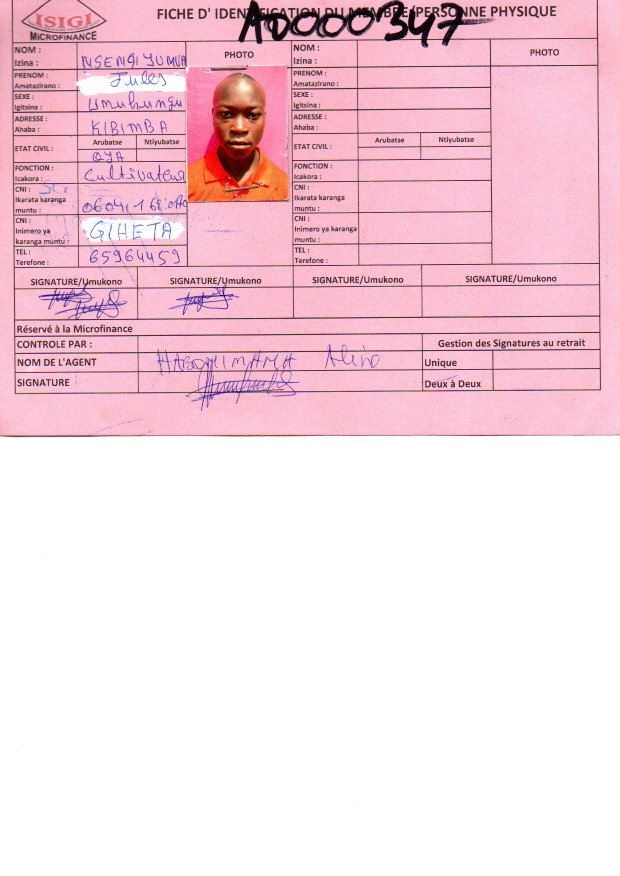 ISIGI
MICROFINANCE
FICHE D' IDENTIFICATION DU MEMBRE/PERSONNE PHYSIQUE
A0000347
NOM :
Izina :
NSENGIYUMVA
PHOTO
NOM :
Izina :
PHOTO
PRENOM :
Amatazirano :
Jules
PRENOM :
Amatazirano :
SEXE :
Igitsina :
Umuhungu
SEXE :
Igitsina :
ADRESSE :
Ahaba :
KIBIMBA
ADRESSE :
Ahaba :
ETAT CIVIL :
Arubatse
Ntiyubatse
OYA
ETAT CIVIL :
Arubatse
Ntiyubatse
FONCTION :
Icakora :
Cultivateur
FONCTION :
Icakora :
CNI :
Ikarata karanga
muntu :
CNI :
Ikarata karanga
muntu :
CNI :
Inimero ya
karanga muntu :
GIHETA
CNI :
Inimero ya karanga
muntu :
TEL :
Terefone :
65964459
TEL :
Terefone :
SIGNATURE/Umukono
SIGNATURE/Umukono
SIGNATURE/Umukono
SIGNATURE/Umukono
Réservé à la Microfinance
CONTROLE PAR :
Gestion des Signatures au retrait
NOM DE L'AGENT
Unique
SIGNATURE
Deux à Deux